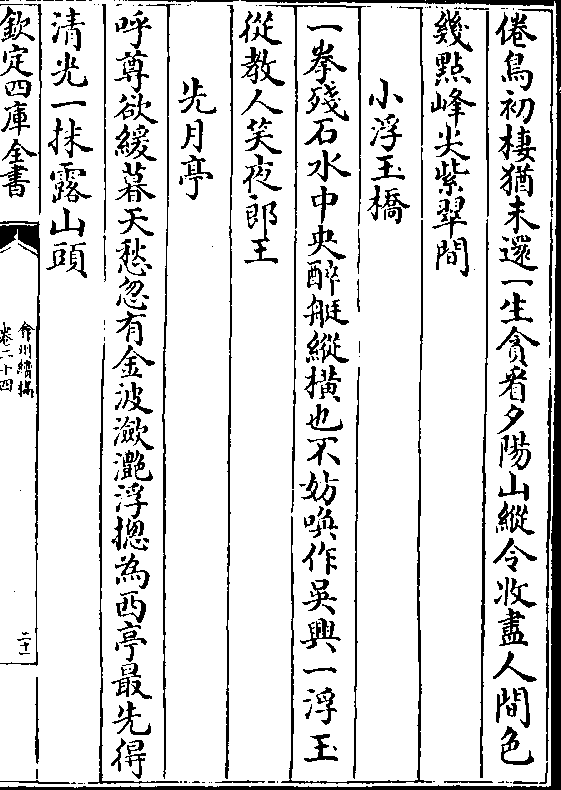 倦鳥初棲猶未還一生貪看夕陽山縱令收盡人間色
幾點峰尖紫翠間
小浮玉橋
一拳殘石水中央醉艇縱橫也不妨喚作吳興一浮玉
從教人笑夜郎王
先月亭
呼尊欲緩暮天愁忽有金波瀲灧浮摠為西亭最先得
清光一抹露山頭
欽定四庫全書
弇州續稿
卷二十四
二十一